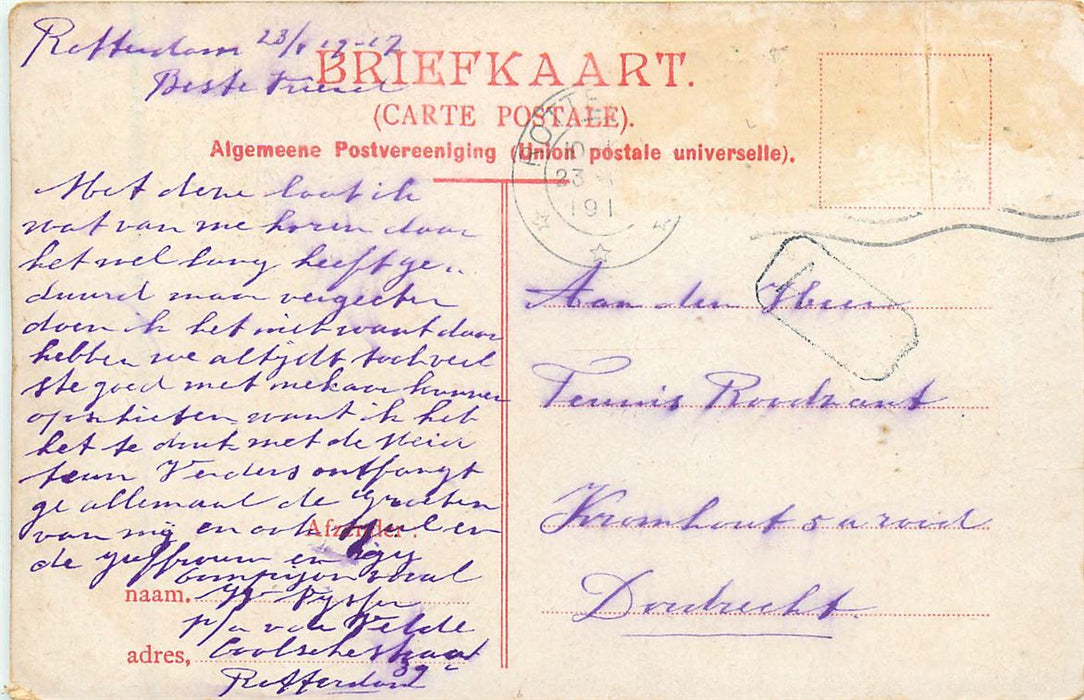 Rotterdam 23/ 19-12
Beste Vriend
BRIEFKAART.
(CARTE POSTALE).
Algemeene Postvereeniging (Union postale universelle).
ROTTE
10
23
191
Met deze laat ik
wat van me horen daar
het wel lang heeft ge
duurd maar vergeeten
doen ik het niet want daar
hebben we altijdt toch veel
ste goed met mekaar kunnen
want ik heb
het te druk met de
Verders ontfangt
ge allemaal de Groeten
van mij en ook
de juffrouw en
vooral
Afzender:
naam.
p/a v d Velde
adres,
39
Rotterdam
Aan den Heer
Teunis Roodzant
Kromhout 5 a rood
Dordrecht